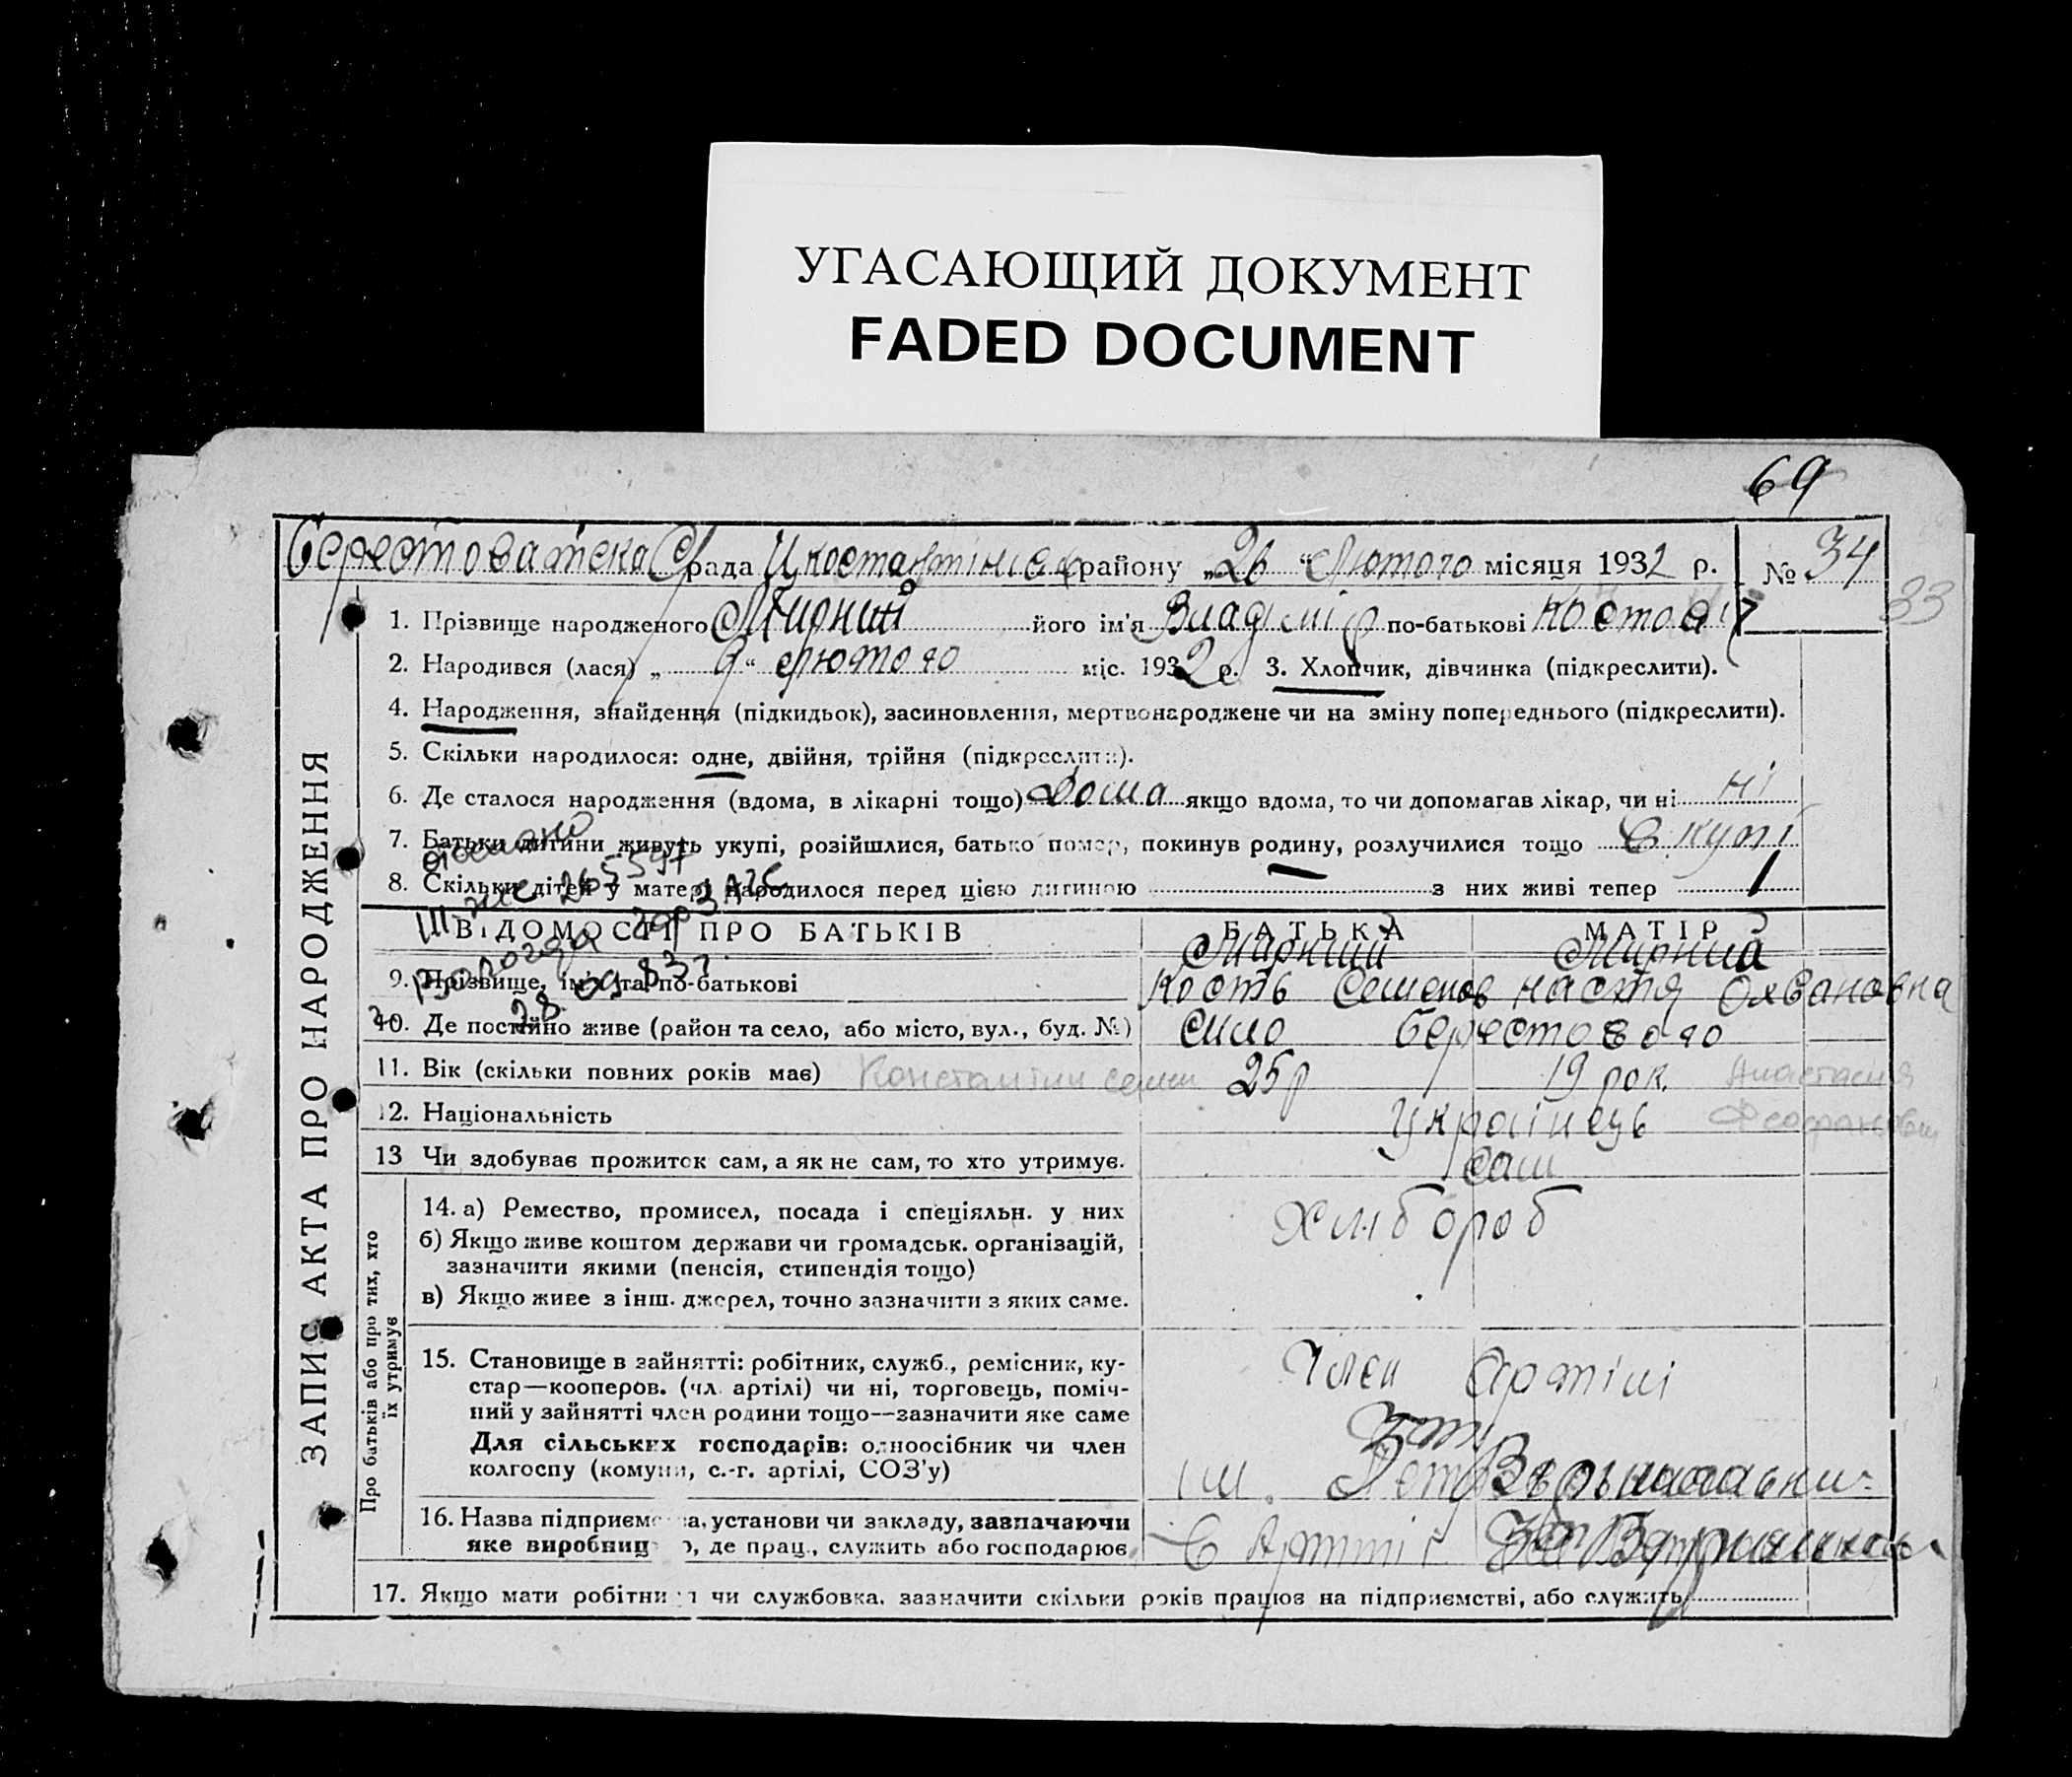 УГАСАЮЩИЙ ДОКУМЕНТ
FADED DOCUMENT
69
Берестоватска С/рада району „26“ Лютого місяця 1932 р. № 34
33
ЗАПИС АКТА ПРО НАРОДЖЕННЯ
1. Прізвище народженого Мирний його ім'я Владімір по-батькові
2. Народився (лася) „9“ лютого міс. 1932 р. 3. Хлопчик, дівчинка (підкреслити).
4. Народження, знайдення (підкидьок), засиновлення, мертвонароджене чи на зміну попереднього (підкреслити).
5. Скільки народилося: одне, двійня, трійня (підкреслити).
6. Де сталося народження (вдома, в лікарні тощо) Дома якщо вдома, то чи допомагав лікар, чи ні ні
7. Батьки дитини живуть укупі, розійшлися, батько помер, покинув родину, розлучилися тощо В купі
8. Скільки дітей у матері народилося перед цією дитиною — з них живі тепер 1
265597
28 09 83 г.
ВІДОМОСТІ ПРО БАТЬКІВ БАТЬКА МАТІР
Мирний Мирний
9. Прізвище, ім'я та по-батькові Кость Семенов Настя
10. Де постійно живе (район та село, або місто, вул., буд. №) Село Берестового
11. Вік (скільки повних років має) Константин семен 25 р 19 рок. Анастасия
12. Національність Українець
13 Чи здобуває прожиток сам, а як не сам, то хто утримує. Сам
Про батьків або про тих, хто їх утримує
14. а) Ремество, промисел, посада і спеціяльн. у них Хлібороб
б) Якщо живе коштом держави чи громадськ. організацій,
зазначити якими (пенсія, стипендія тощо)
в) Якщо живе з інш. джерел, точно зазначити з яких саме.
15. Становище в зайнятті: робітник, служб., ремісник, ку-
стар—кооперов. (чл. артілі) чи ні, торговець, поміч-
ний у зайнятті член родини тощо—зазначити яке саме
Член Артілі
Для сільських господарів: одноосібник чи член
колгоспу (комуни, с.-г. артілі, СОЗ'у)
ім.
16. Назва підприємс ва, установи чи закладу, зазначаючи
яке виробниц о, де прац., служить або господарює В Артілі
17. Якщо мати робітни я чи службовка, зазначити скільки років працює на підприємстві, або служить